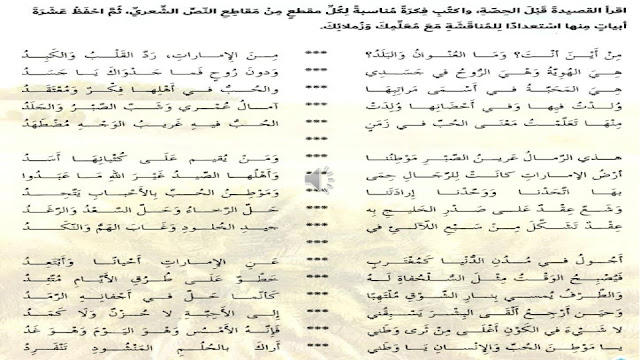 اقرأ القصيدة قبل الحصة، واكتب فكرة مناسبة لكل مقطع من مقاطع النص الشعري، ثم احفظ عشرة
أبيات منها استعدادًا للمناقشة مع معلمك وزملائك.
من أين أنت؟ وما العنوان والبلد؟ *** من الإمارات، رد القلب والكبد
هي الهوية وهي الروح في جسدي *** ودون روح فما جدواك يا جسد
هي المحبة في أسمى مراتبها *** والحب في أهلها فكر ومعتقد
ولدت فيها وفي أحضانها ولدت *** آمال عمري وشب الصبر والجلد
منها تعلمت معنى الحب في زمن *** الحب فيه غريب الوجه مضطهد
***
هذي الرمال عرين الصبر موطننا *** ومن يقيم على كثبانها أسد
أرض الإمارات كانت للرجال حمى *** وأهلها الصيد غير الله ما عبدوا
بها اتحدنا ووحدنا إرادتنا *** وموطن الحب بالأحباب يتحد
وشع عقد على صدر الخليج به *** حل الرخاء وحل السعد والرغد
عقد تشكل من سبع اللآلئ في *** جيد الخلود وغاب الهم والنكد
أجول في مدن الدنيا كمغترب *** عن الإمارات أحيانا وأبتعد
فيصبح الوقت مثل السلحفاة له *** خطو على طرق الأيام متئد
والطرف يمسي بنار الشوق ملتهبا *** كأنما حل في أجفانه الرمد
وحين أرجع ألقى البشر يسبقني *** إلى الأحبة لا حزن ولا كمد
لا شيء في الكون أغلى من ثرى وطني *** فإنه الأمس وهو اليوم وهو غد
يا موطن الحب والإنسان يا وطني *** أراك بالحلم المنشود تنفرد